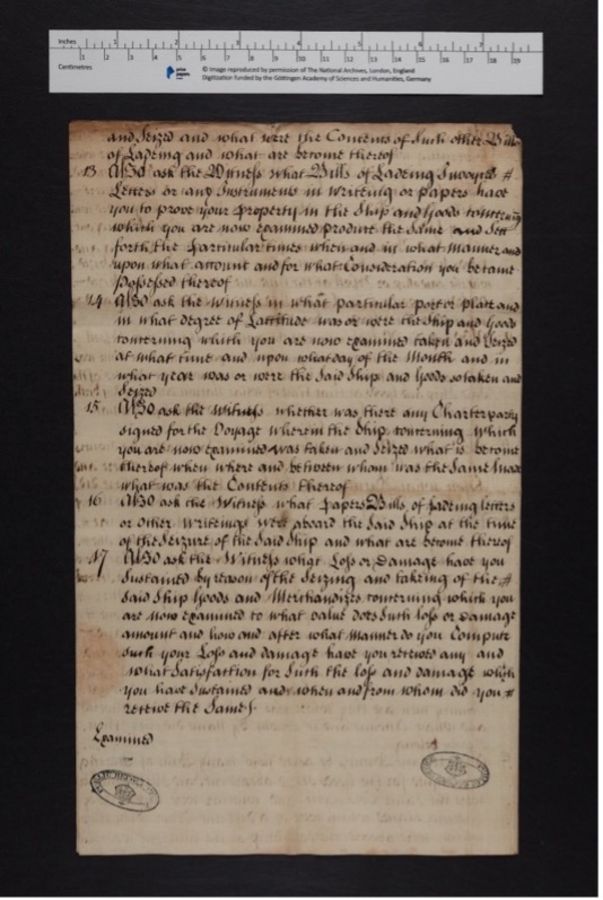 Inches
1 2 3 4 5 6 7
1 2 3 4 5 6 7 8 9 10 11 12 13 14 15 16 17 18 19
Centimetres
prize papers
© Image reproduced by permission of The National Archives, London, England
Digitization funded by the Göttingen Academy of Sciences and Humanities, Germany
and Seized and what were the Contents of Such other Bills
of Ladeing and what are become thereof
13 Also ask the Witness what Bills of Ladeing Invoyces #
Letters or any Instruments in Writeing or papers have
you to prove your property in the Ship and Goods concerning
which you are now examined produce the Same and Sett
forth the particular times when and in what Manner and
upon what account and for what Consideration you became
possessed thereof
14 Also ask the Witness in what particular port or place and
in what degree of Lattitude was or were the Ship and Goods
concerning which you are now examined taken and Seized
at what time and upon what day of the Month and in
what year was or were the Said Ship and Goods so taken and
Seized
15 Also ask the Witness whether was there any Charterparty
signed for the Voyage wherein the Ship concerning which
you are now examined was taken and Seized what is become
thereof when where and between whom was the Same made
what was the Contents thereof
16 Also ask the Witness what papers Bills of Ladeing letters
or other writeings were aboard the Said Ship at the time
of the Seizure of the Said Ship and what are become thereof
17 Also ask the Witness what Loss or Damage have you
Sustained by reason of the Seizing and takeing of the #
Said Ship Goods and Merchandizes concerning which you
are now examined to what value does Such loss or Damage
amount and how and after what manner do you Compute
Such your Loss and damage have you received any and
what Satisfaction for Such the loss and damage which
you have Sustained and when and from whom did you #
receive the Same
Examined